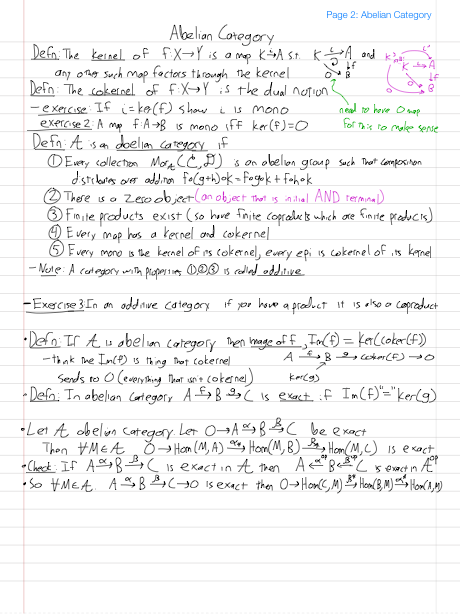 Page 2: Abelian Category
Abelian Category
Defn: The kernel of f: X→Y is a map K→A s.t. K →i A and
0 → B ↓f
any other such map factors through the kernel
Defn: The cokernel of f: X→Y is the dual notion
need to have 0 map
for this to make sense
- exercise: If i = ker(f) show i is mono
exercise 2: A map f: A→B is mono iff ker(f) = 0
Defn: A is an abelian category if
① Every collection Mor_A(C, D) is an abelian group such that composition
distributes over addition f∘(g+h)∘k = f∘g∘k + f∘h∘k
② There is a zero object (an object that is initial AND terminal)
③ Finite products exist (so have finite coproducts which are finite products)
④ Every map has a kernel and cokernel
⑤ Every mono is the kernel of its cokernel, every epi is cokernel of its kernel
- Note: A category with properties ①②③ is called additive
- Exercise 3: In an additive category if you have a product it is also a coproduct
• Defn: If A is abelian category then image of f, Im(f) = ker(coker(f))
- think the Im(f) is thing that cokernel
A →f B →g coker(f) → 0
sends to 0 (everything that isn't cokernel)
ker(g)
• Defn: In abelian category A →f B →g C is exact if Im(f) "=" ker(g)
• Let A abelian category. Let 0→A →α B →β C be exact
Then ∀M∈A 0→Hom(M,A) →α* Hom(M,B) →β* Hom(M,C) is exact
• Check: If A →α B →β C is exact in A then A ←α^op B ←β^op C is exact in A^op
• So ∀M∈A. A →α B →β C→0 is exact then 0→Hom(C,M) →β* Hom(B,M) →α* Hom(A,M)